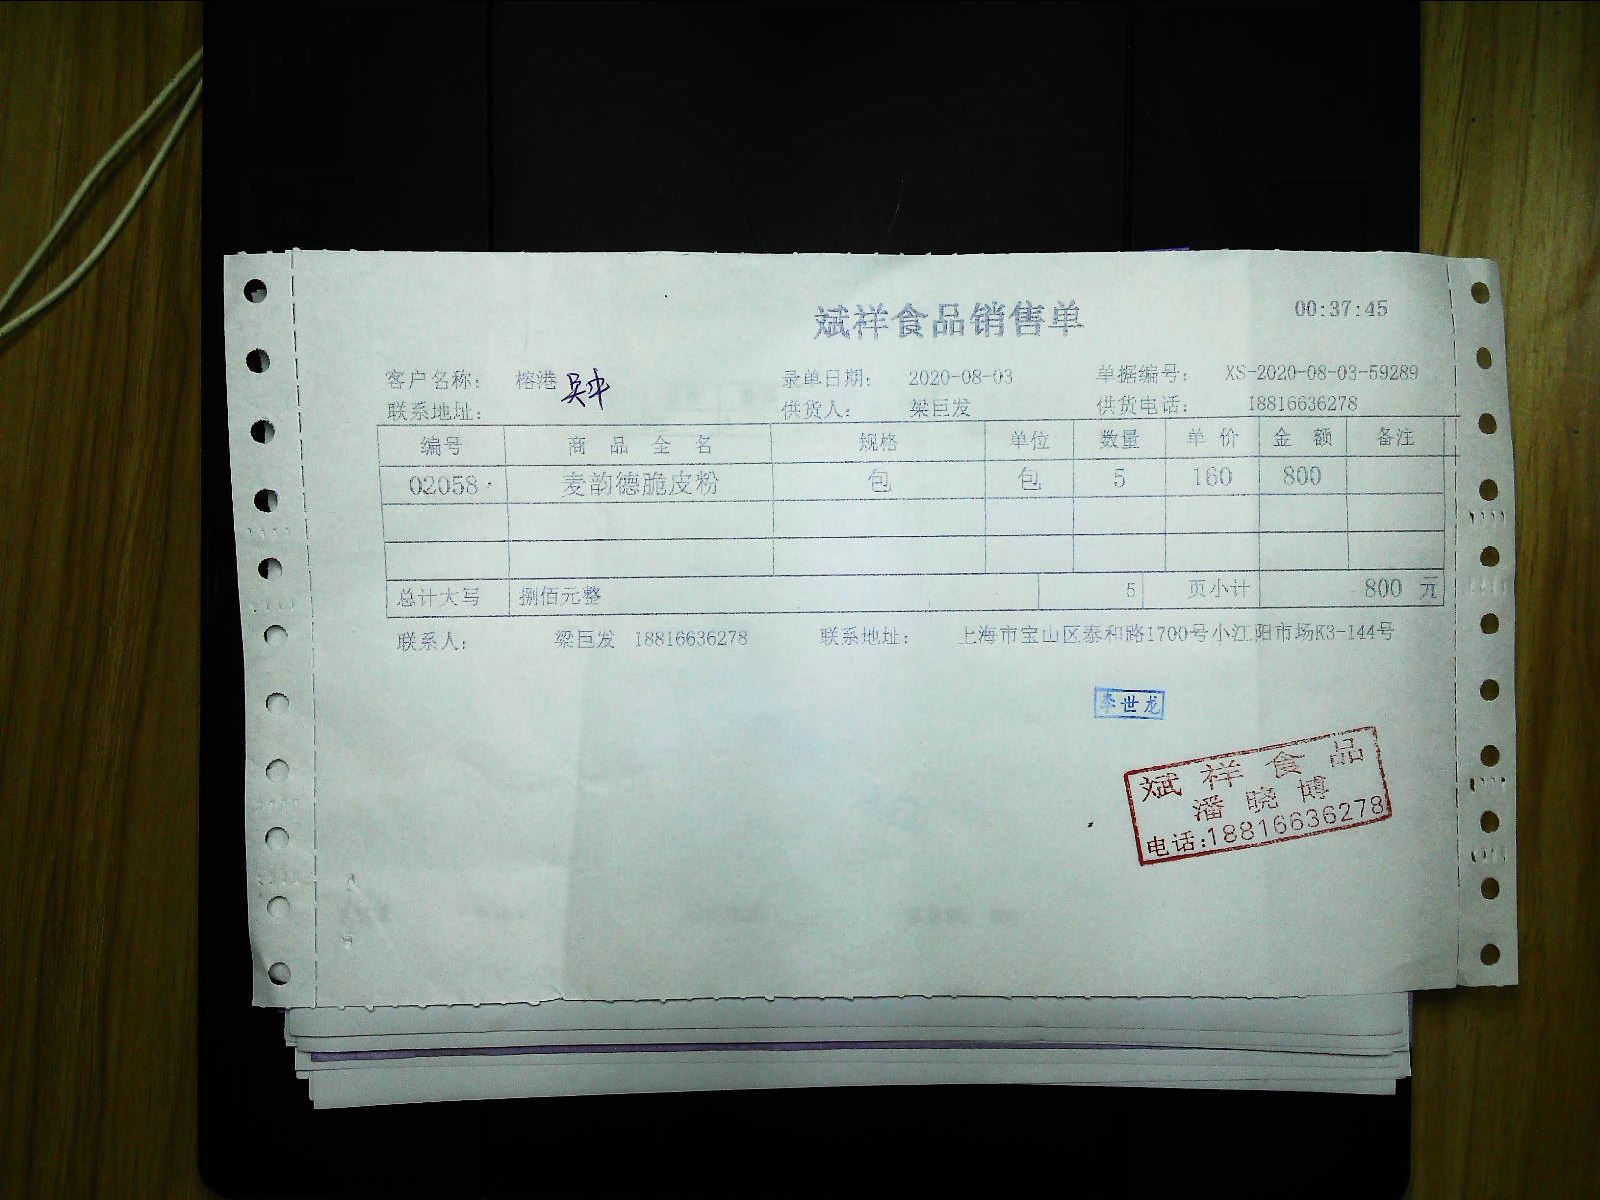 斌祥食品销售单 00:37:45
客户名称： 榕港 录单日期： 2020-08-03 单据编号： XS-2020-08-03-59289
联系地址： 供货人： 梁巨发 供货电话： 18816636278
编号 商品全名 规格 单位 数量 单价 金额 备注
02058 麦韵德脆皮粉 包 包 5 160 800
总计大写 捌佰元整 5 页小计 800 元
联系人： 梁巨发 18816636278 联系地址： 上海市宝山区泰和路1700号小江阳市场K3-144号
李世龙
斌祥食品
潘晓博
电话:18816636278